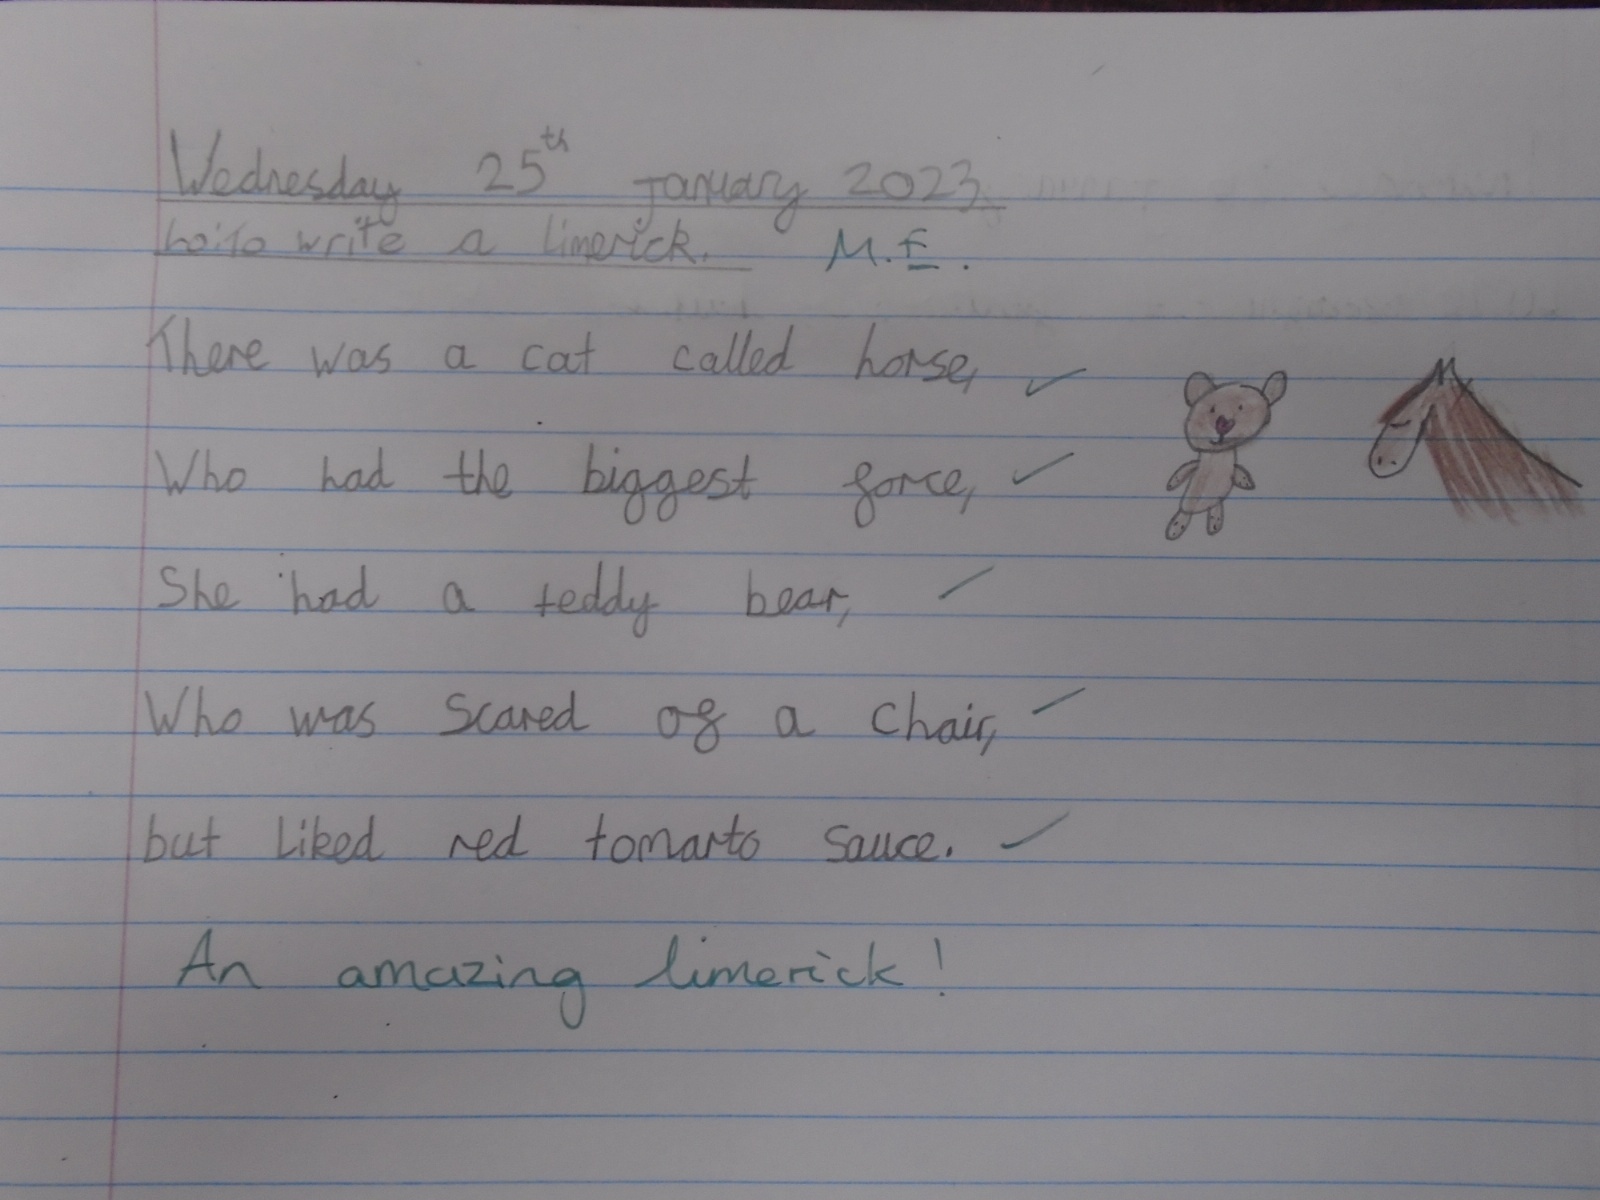 Wednesday 25th January 2023
Lo:To write a limerick. M.E.
There was a cat called horse,
Who had the biggest force,
She had a teddy bear,
Who was scared of a chair,
but liked red tomarto sauce.
An amazing limerick!